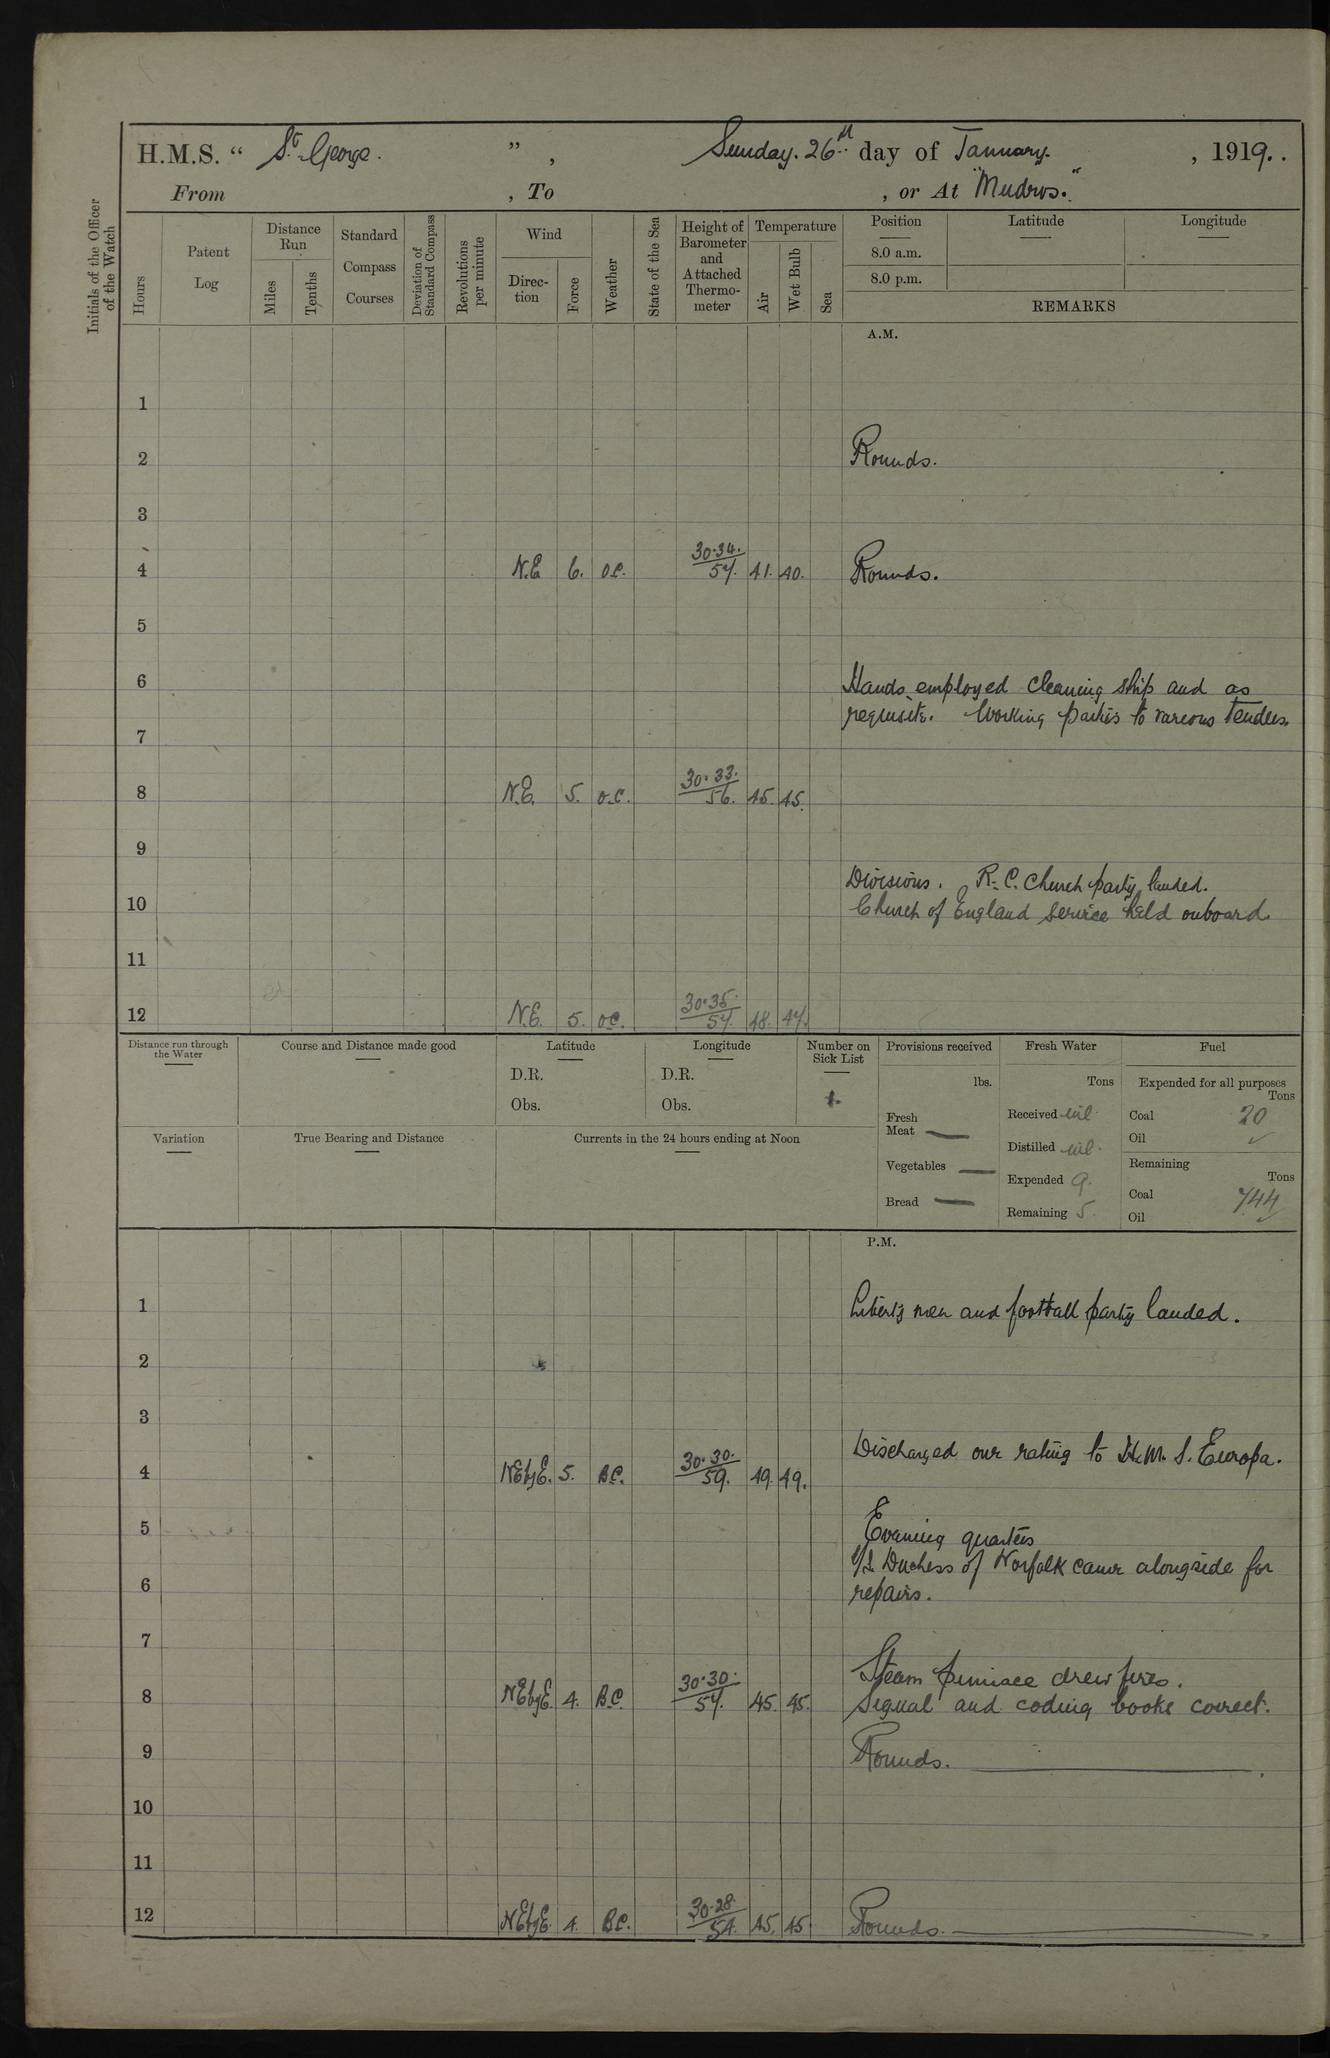 H.M.S. “ St. George. ” , Sunday. 26th day of January. , 1919. .
From , To , or At "Mudros."
Initials of the Officer of the Watch
Hours
Patent Log
Distance Run
Miles
Tenths
Standard Compass Courses
Deviation of Standard Compass
Revolutions per minute
Wind
Direc-tion
Force
Weather
State of the Sea
Height of Barometer and Attached Thermo-meter
Temperature
Air
Wet Bulb
Sea
Position Latitude Longitude
8.0 a.m.
8.0 p.m.
REMARKS
A.M.
1
2 Rounds.
3
4 N.E. 6. o.c. 30.34. / 57. 41. 40. Rounds.
5
6 Hands employed cleaning ship and as
requisite. Working parties to various Tenders.
7
8 N.E. 5. o.c. 30.33. / 56. 45. 45.
9
Divisions. R.C. Church party landed.
10 Church of England Service held onboard.
11
12 N.E. 5. o.c. 30.35. / 57. 48. 47.
Distance run through the Water
Course and Distance made good
Latitude
D.R.
Obs.
Longitude
D.R.
Obs.
Number on Sick List
Provisions received
lbs.
Fresh Meat —
Vegetables —
Bread —
Fresh Water
Tons
Received nil
Distilled nil.
Expended 9.
Remaining 5.
Fuel
Expended for all purposes
Tons
Coal 20
Oil ✓
Remaining
Tons
Coal 744
Oil ✓
Variation
True Bearing and Distance
Currents in the 24 hours ending at Noon
P.M.
1 Liberty men and football party landed.
2
3
Discharged one rating to H.M.S. Europa.
4 NEbyE. 5. B.C. 30.30. / 59. 49. 49.
5 Evening quarters
Duchess of Norfolk came alongside for
6 repairs.
7
Steam pinnace drew fires.
8 NEbyE. 4. B.C. 30.30. / 57. 45. 45. Signal and coding books correct.
9 Rounds.
10
11
12 NEbyE. 4. B.C. 30.28. / 54. 45. 45. Rounds.